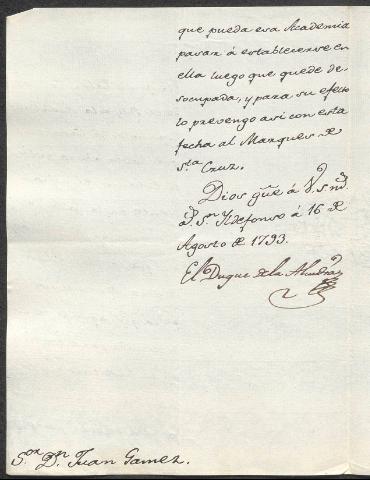 que pueda esa Academia
pasar á establecerse en
ella luego que quede de-
socupada, y para su efecto
lo prevengo asi con esta
fecha al Marques de
S.ta Cruz.
Dios gũe á V. s m.s
a.s S.n Ildefonso á 16 de
Agosto de 1793.
El Duque de la Alcudia
S.or D.n Juan Gamez.